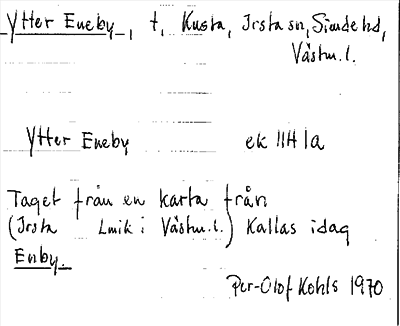 Ytter Eneby, t, Kusta, Irsta sn, Siende hd,
Västm. l.
Ytter Eneby ek 11H 1a
Taget från en karta från
(Irsta Lmik i Västm. l.) Kallas idag
Enby.
Per-Olof Kohls 1970